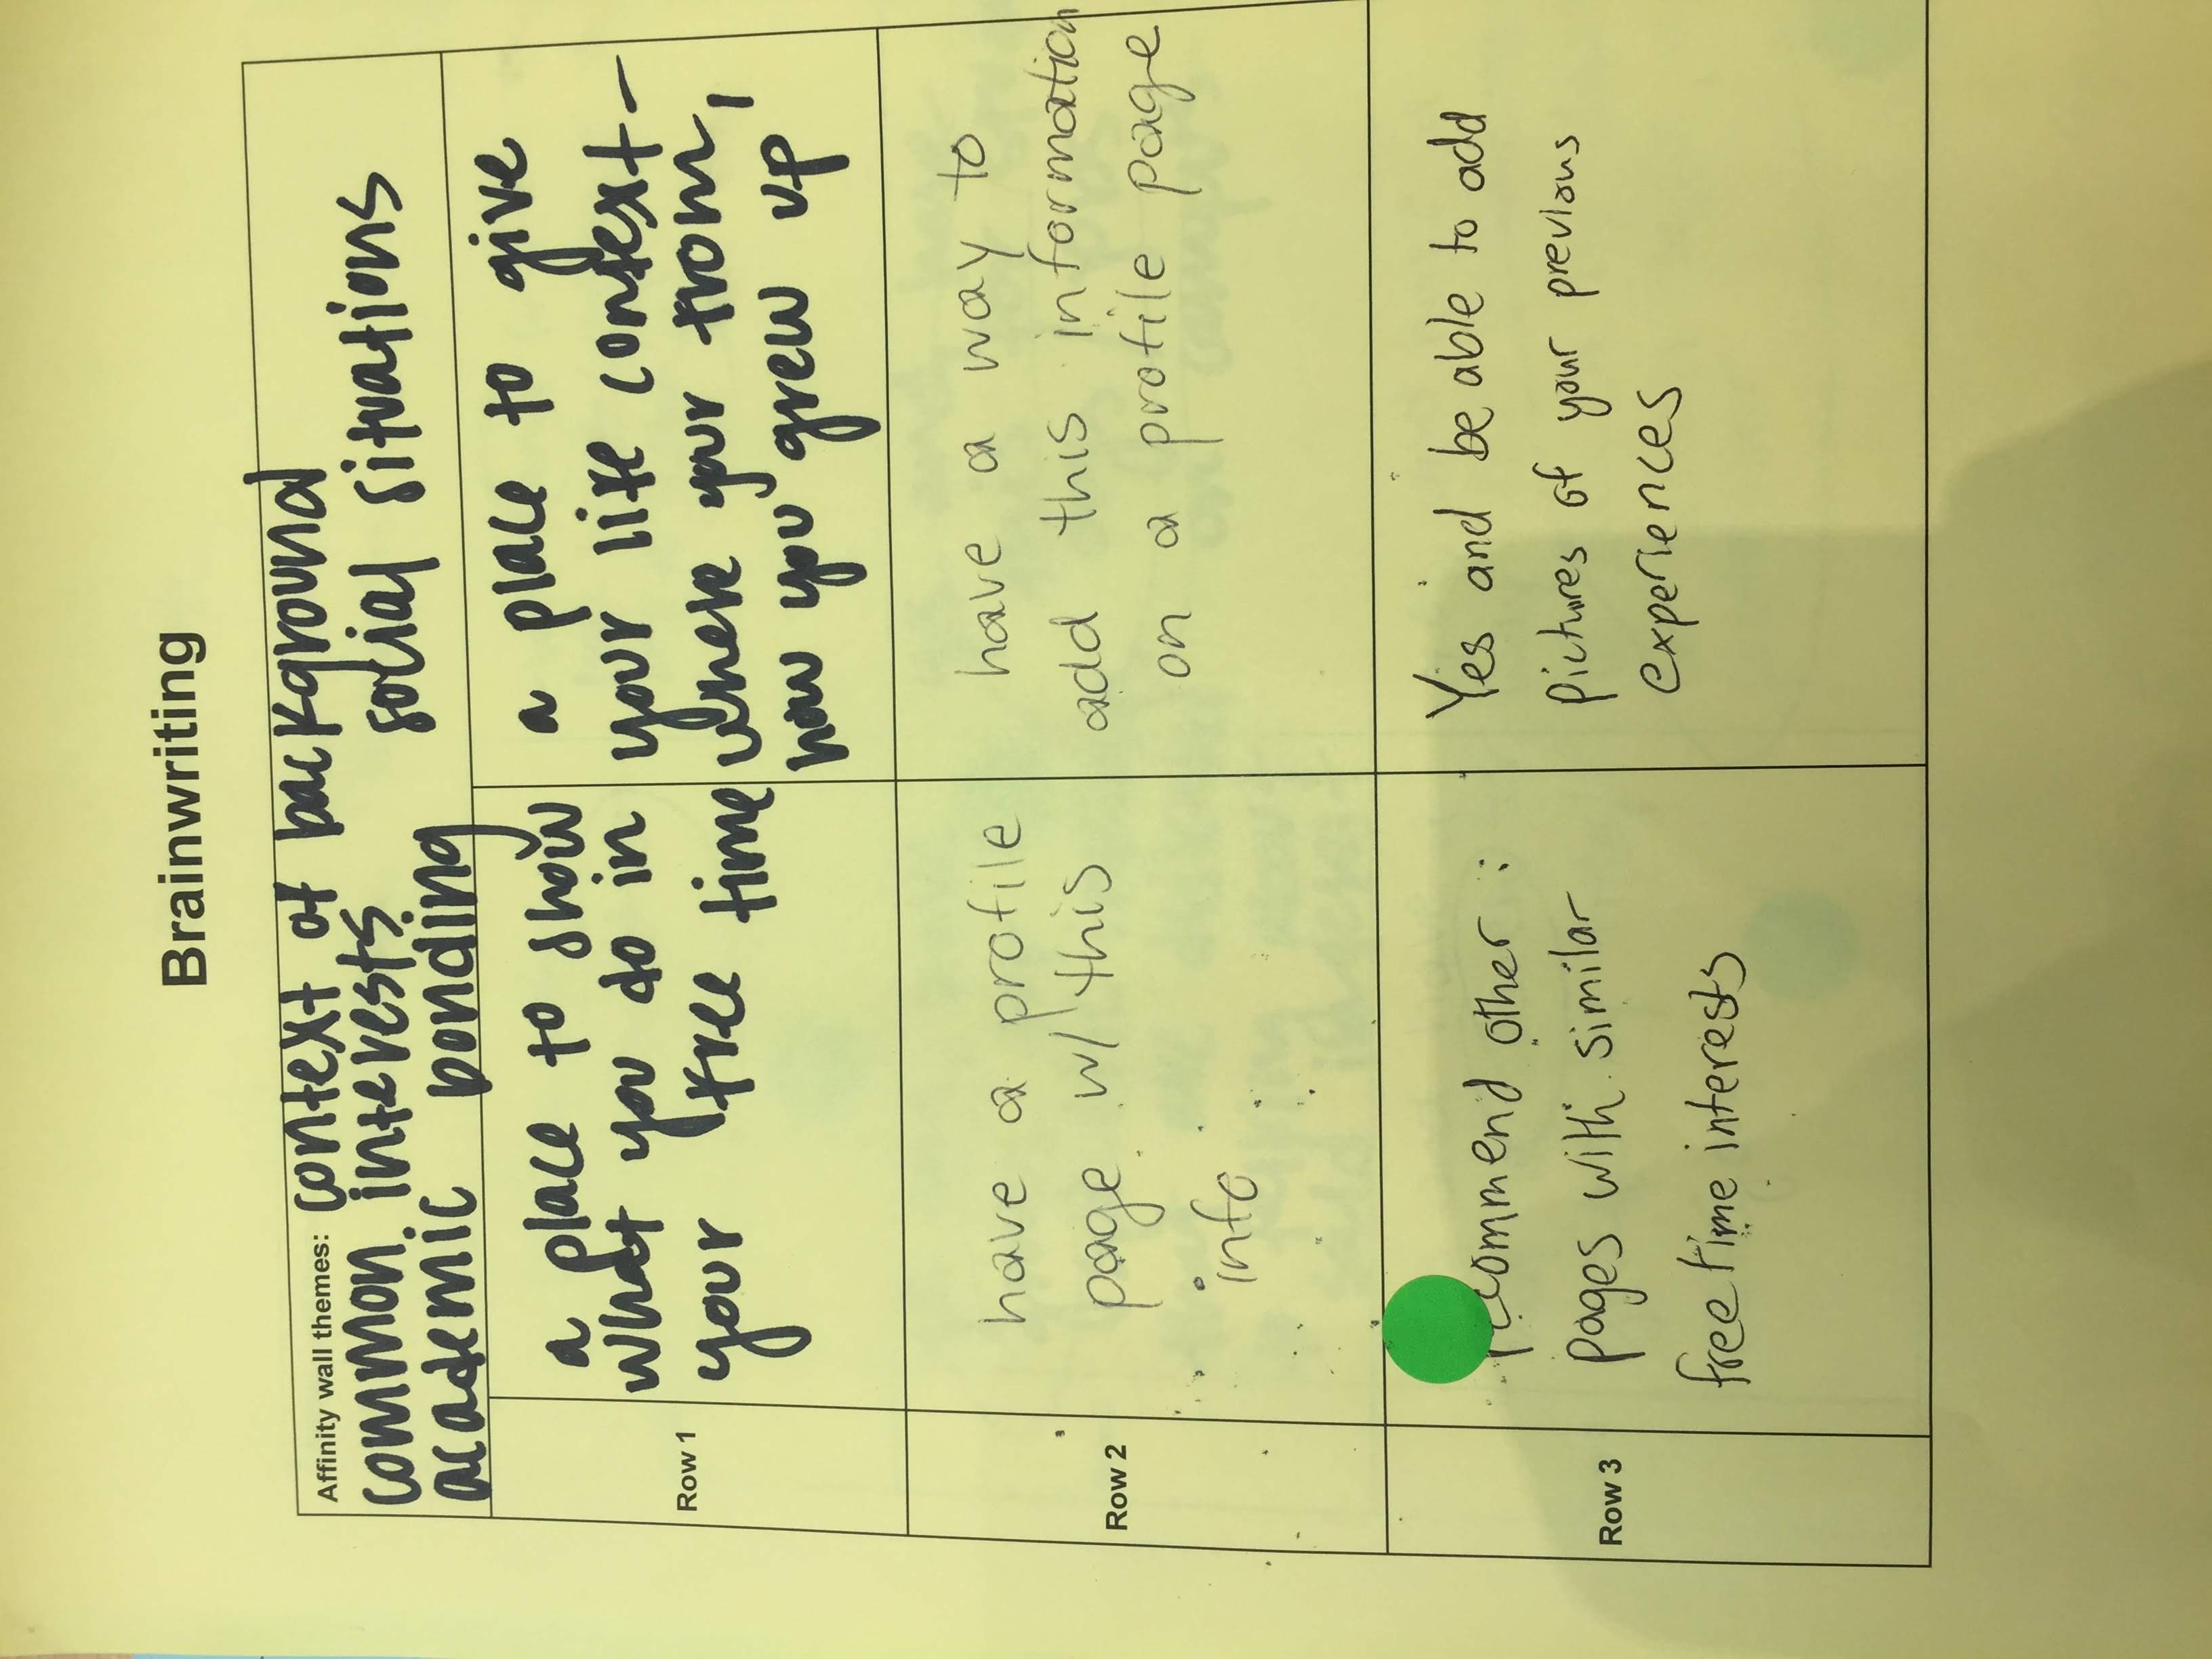 Brainwriting
Affinity wall themes: context of background
common interests social situations
academic bonding
Row 1
a place to show
what you do in
your free time
a place to give
your life context-
where your from,
how you grew up
Row 2
have a profile
page w/ this
info
have a way to
add this information
on a profile page
Row 3
recommend other
pages with similar
free time interests
Yes and be able to add
pictures of your previous
experiences